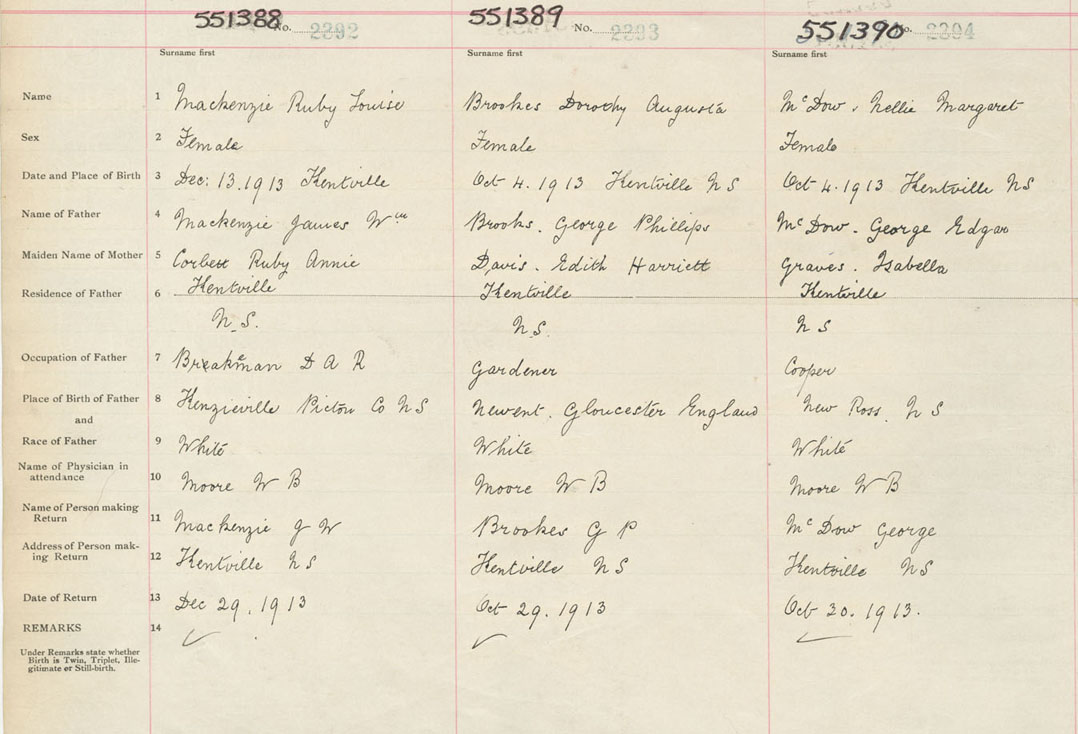 551388 No. 2292 551389 No. 2293 551390 No. 2294
Surname first Surname first Surname first
Name 1 Mackenzie Ruby Louise Brookes Dorothy Augusta McDow, Nellie Margaret
Sex 2 Female Female Female
Date and Place of Birth 3 Dec: 13.1913 Kentville Oct 4.1913 Kentville NS Oct 4.1913 Kentville NS
Name of Father 4 Mackenzie James Wm Brooks. George Phillips McDow. George Edgar
Maiden Name of Mother 5 Corbett Ruby Annie Davis. Edith Harriett Graves. Isabella
Residence of Father 6 Kentville Kentville Kentville
N.S. N.S. NS
Occupation of Father 7 Breakeman D A R Gardener Cooper
Place of Birth of Father 8 Kenzieville Pictou Co NS Newent. Gloucester England New Ross. NS
and
Race of Father 9 White White White
Name of Physician in
attendance 10 Moore W B Moore W B Moore W B
Name of Person making
Return 11 Mackenzie J W Brookes G P McDow George
Address of Person mak-
ing Return 12 Kentville NS Kentville NS Kentville NS
Date of Return 13 Dec 29, 1913 Oct 29. 1913 Oct 30. 1913.
REMARKS 14
Under Remarks state whether
Birth is Twin, Triplet, Ille-
gitimate or Still-birth.